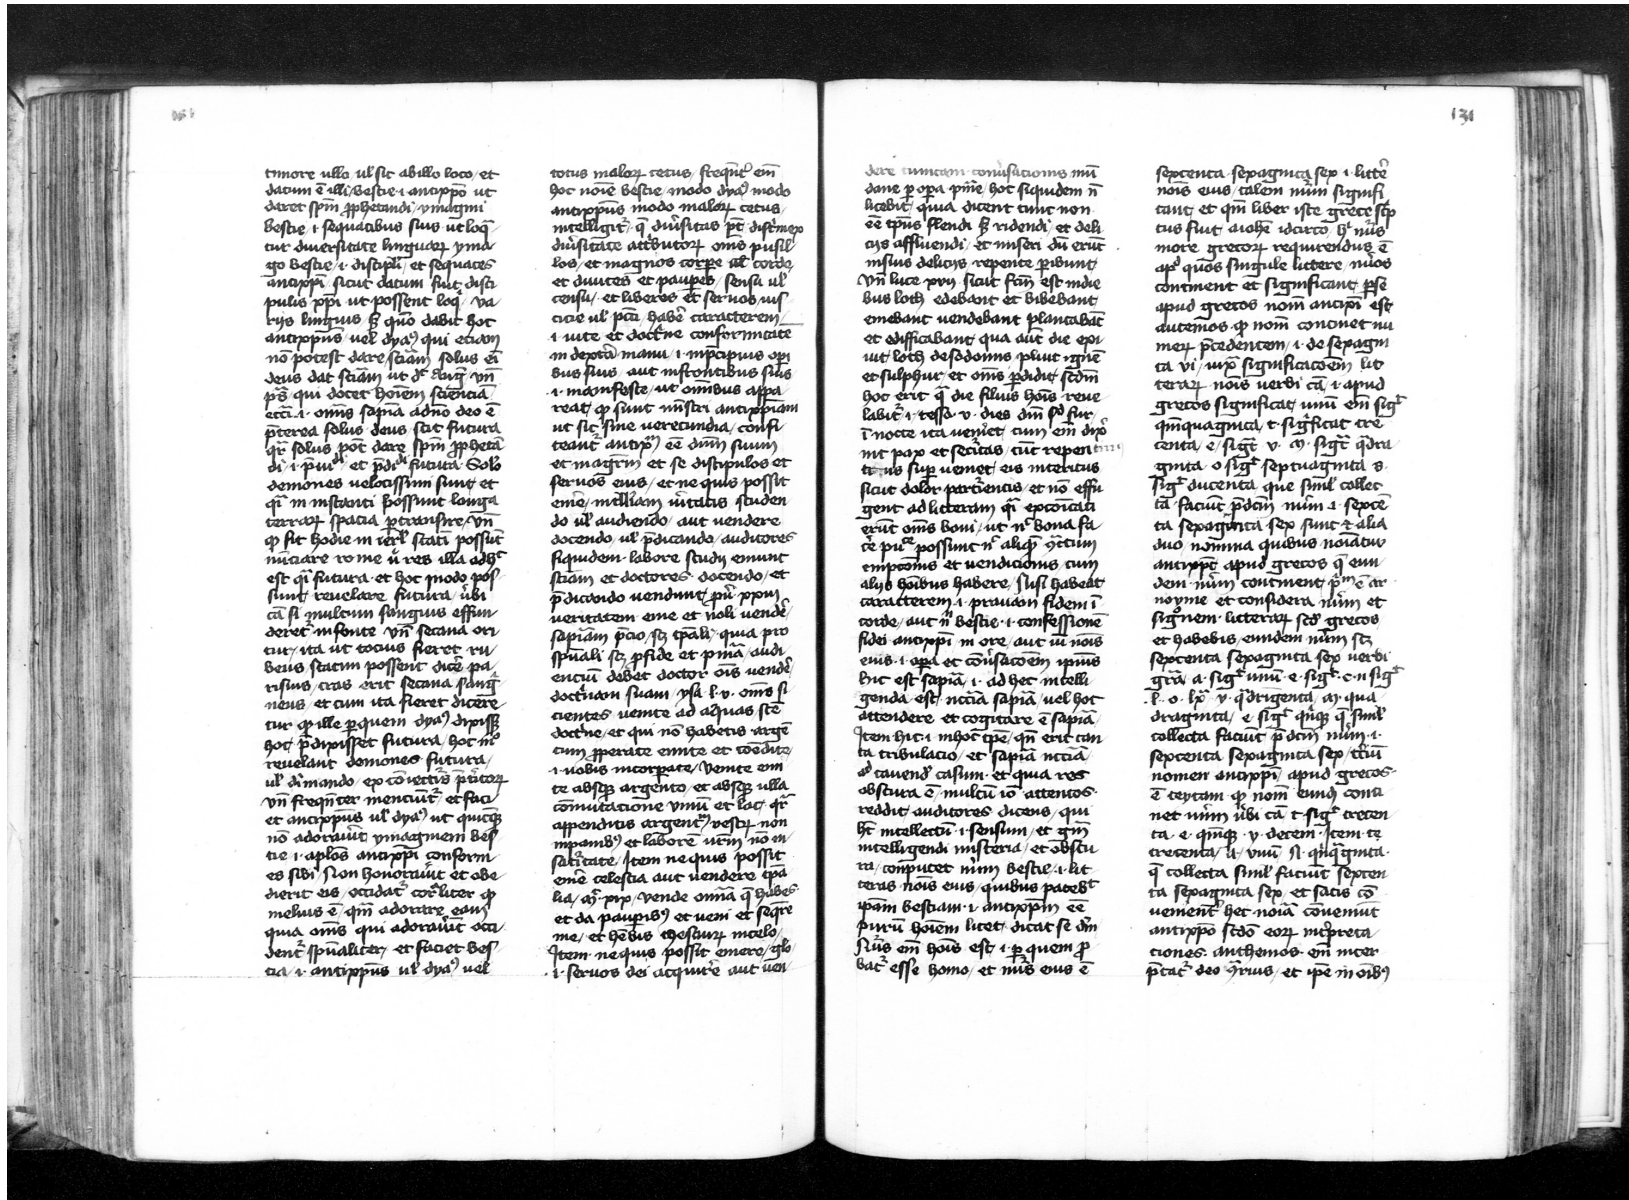 timore ullo, ul' sic ab illo loco, et
datum ē illi bestie .i. antixp̄o ut
daret sp̄m ꝓphetandi ymagini
bestie .i. sequacibus suis ut loqͣ
tur diversitate linguarꝝ yma
go bestie .i. discipl'i et sequaces
antixp̄i, sicut datum fuit disci
pulis xp̄i ut possent loqͥ va
rijs linguis, sꝫ quō dabit hoc
antixp̄us, vel dyaꝰ qui eciam
nō potest dare sciām solus eī
deus dat sciām ut dt̄ aug vn̄
ps̄, qui docet hoīem scienciā
.i. om̄is sapīa a dn̄o deo ē
p̄terea solus deus scit futura
qr̄ solus pōt dare sp̄m ꝓphetā
di .i. et futura. Solo
demones velocissimi sunt et
qͣ in instanti possunt longa
terrarꝝ spacia ꝑtransire, vn̄
qͦ fit hodie in ierl'm statī possūt
nūciare rome res illa adhͨ
est futura et hoc modo pos
sunt revelare futura, ubi
cā si multum sanguis effun
deret' in fonte vn̄ secana ori
tur, ita ut tocius fieret ru
beus statim possent dicē pa
risius, cras erit secana sang
neus, et cum ita fieret dicere
tur qͦ ille ꝑ quem dyaꝰ dixisꝫ
hoc, p̄dixisset futura, hoc mō
revelant demones futura,
ul' dīmando, ex cōiecturis
vn̄ frequēter menciūt' et faci
et antixp̄us ul' dyaꝰ ut quicūqꝫ
nō adoravīt ymaginem bes
tie .i. ap̄los antixp̄i conform
es sibi, Non honoravīt et obe
dierit eis, occidat' corꝑaliter qͦ
melius ē qm̄ adorare eam
quia om̄s qui adoravīt occi
dent' sp̄ualiter, et faciet bes
tia .i. antixp̄us ul' dyaꝰ vel
totus malorꝝ cetus, freqūt' em̄
hoc noīe bestie, modo dyaꝰ modo
antixp̄us modo malorꝝ cetus
intelligit', qͣ diūsitas pꝫ dist
diūsitate attributorꝝ om̄s pusil
los, et magnos corꝑe ul' corde,
et divites et pauꝑes, sensu ul'
censu, et liberos et servos ius
ticie ul' pcti, habē caracterem,
.i. vite et doctͥne conformitatē
in dextͣ manu .i. in p̄cipuis opi
bus suis, aut in frontibus suis
.i. manifeste, ut om̄ibus appa
reat, qͦ sunt mīstri antixp̄iani
ut sic sine verecundia, confi
teant' antixp̄m eē dn̄m suum
et magr̄m et se discipulos et
servos eius, et ne quis possit
emē, intelligēciam vītatis, studen
do ul' audiendo, aut vendere
docendo, ul' p̄dicando, auditores
siquidem labore studij emunt
sciām et doctores docendo, et
p̄dicando vendunt, ꝓuͥ xxiij
veritatem eme et noli vendē
sapīam p̄cio, scꝫ tp̄ali, quia pro
sp̄uali scꝫ ꝓ fide et pīnīa, audi
encium debet doctor oīs vendē
doctͥnam suam, ysa .l.v. om̄s si
cientes venite ad aquas scē
doctͥne, et qui nō habetis argē
tum ꝓperate emite et comēdite
.i. vobis incorꝑate, venite em
te absqꝫ argento, et absqꝫ ulla
commutacione vinū et lac, qͣre
appenditis argentū vestrꝝ non
in panibꝰ et laborē ur̄m nō in
saturitate, Item ne quis possit
emē celestia aut vendere tp̄a
lia, mͣ xix, vende om̄ia qͣ habes
et da pauꝑibꝰ et veni et seqͣre
me, et hēbis thesaurꝝ in celo,
Item ne quis possit emere, glo
.i. servos dei acquirē aut ven
dere conūsacionis mū
dane ꝑ opa pīnīe, hoc siquidem n̄
licebit, quia dicent tunc non
eē tp̄us flendi sꝫ ridendi, et deli
cijs affluendi, et miseri dū erūt
in suis delicijs, repente ꝑibunt,
Vn̄ luce xvij sicut fcm̄ est in die
bus loth, edebant et bibebant
emebant vendebant plantabāt
et edificabant, qua aūt die exi
vit loth de sodomis, pluit ignē
et sulphur, et om̄s ꝑdidit, scdm̄
hoc erit qͣ die filius hoīs reve
labit' .i. tessa. v. dies dn̄i sꝫ fur
ī nocte ita veniet, cum em̄ dix
int pax et secūtas, tūc repen
sup veniet eis interitus
sicut dolor parturientis, et nō effu
gent, ad litteram qͥ excōicati
erūt om̄s boni, ut nͥ bona fa
cē possunt nͥ aliqͣ cōtum
empcionis et vendicionis, cum
alijs hoībus habere, Nisi habeāt
caracterem .i. pravam fidem ī
corde, aut nͫ bestie .i. confessionē
fidei antixp̄i in ore, aut nō nois
eius .i. opa et conūsacōem ipsius
hic est sapīa, .i. ad hec intelli
genda est nccīa sapīa, vel hoc
attendere et cogitare ē sapīa,
Item hic .i. in hoc tp̄e, qn̄ erit tan
ta tribulacio, et sapīa nccīā,
ad cavendͫ casum, et quia res
obscura ē, multū iō attentos
reddit, auditores dicens, qui
ht̄ intellectū .i. sensum, et gm̄
intelligendi misteria, et obscu
ra, conputet nūm bestie .i. lit
teras nois eius, quibus patebͭ
ip̄am bestiam .i. antixp̄m eē
purū hoīem licet, dicat se dm̄
Nūs em̄ hoīs est .i. ꝑ quem ꝓ
bat' esse homo, et nūs eius ē
sexcenta sexaginta sex .i. littē
nois eius, talem nūm signifi
cant, et qm̄ liber iste grece scͥp
tus fuit a ioh̄e idcirco, hͥ nūs
more grecorꝝ requirendus ē
apͩ quos singule littere, nūos
continent et significant, ꝑ se
apud grecos nom̄ anticp̄i est
autemos qͦ nom̄ continet nu
merꝝ p̄cedentem, .i. de sexagin
ta vi, iuxͣ significacōem lit
terarꝝ nois verbi cā .i. apud
grecos significat, unū em̄ sigͭ
qͥnquaginta, t. sigficat tre
centa, e. sigt̄ v. m. sigt̄ qͣdra
ginta, o sigͭ septuaginta s.
sigͭ ducenta, que simul collec
ta, faciūt p̄dcm̄ nūm .i. sexcē
ta sexaginta sex sunt et alia
duo nomina quibus noīatur
antixpͨ apud grecos qͣ eun
dem nūm continent, pͫ ē ar
noyme et considera nūm et
sigͦnem litterarꝝ scdͫ grecos
et habebis, eundem nūm scꝫ
sexcenta sexaginta sex verbi
grā, a. sigͭ unū. e. sigͭ .c. n sigͭ
.l. o. lxx. y. qͣdrigenta, m. qua
draginta, e. sigͭ qͥnqꝫ qͣ simul
collecta faciūt p̄dcm̄ nūm .i.
sexcenta sexaginta sex, tͥciū
nomen antixp̄i, apud grecos
ē teytam, qͦ nom̄ eundͫ conti
net nūm, ubi cā t sigͭ trecen
ta. e. qͥnqꝫ .y. decem. Item te
trecenta, a. unū. N. qͥnqͣginta
qͣ collecta simul faciūt sexcen
ta sexaginta sex, et satis cō
venient' hec noīa conveniūt
antixp̄o scdm̄ eorꝝ interpreta
ciones. anthemos em̄ inter
p̄tat' deo ꝯtrarius, et ip̄e in oībꝰ
131